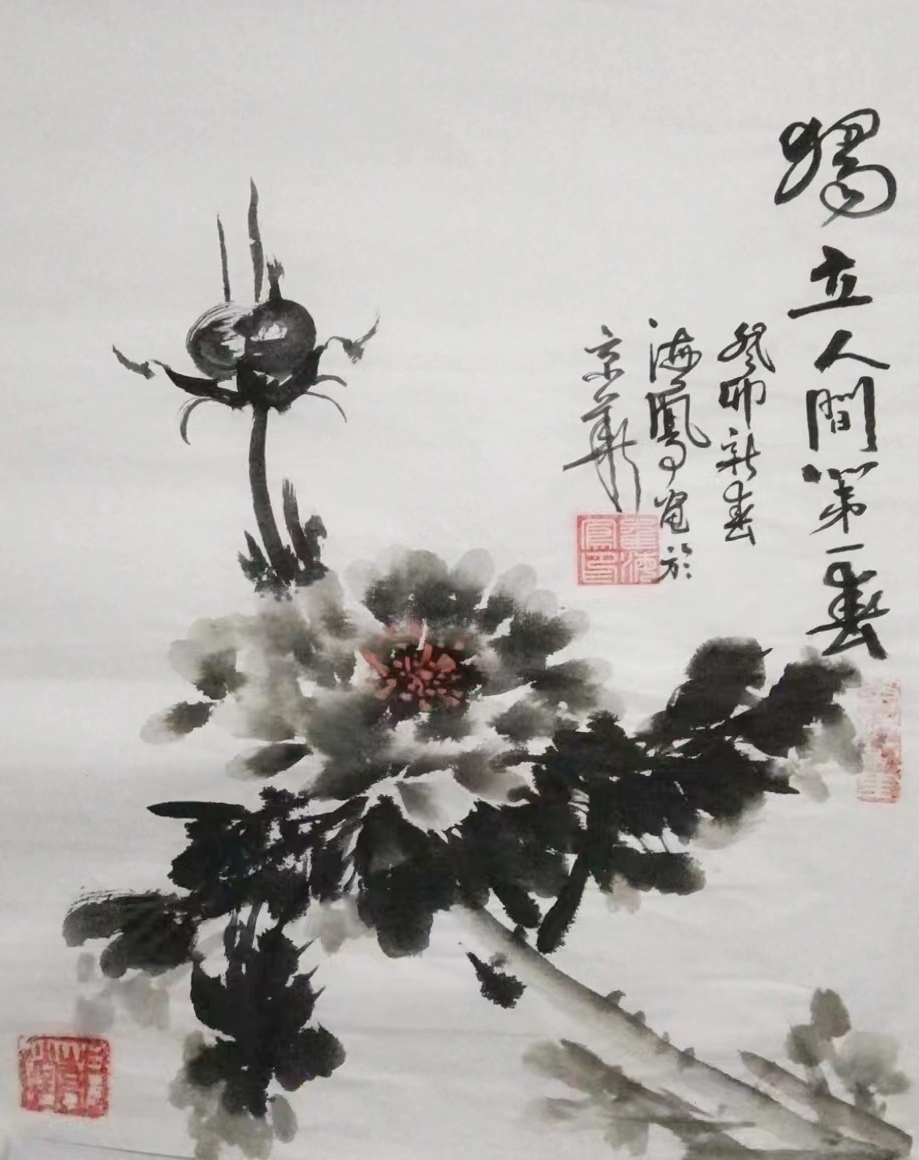 獨立人間第一春
癸卯新春
海鳳畫於
京華